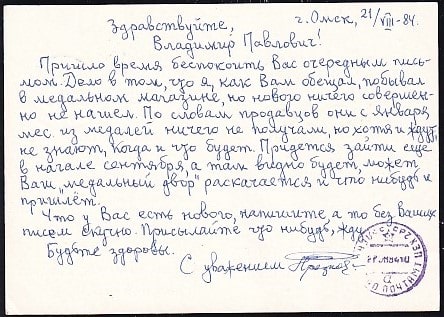 Здравствуйте,
г. Омск, 21/VIII-84.
Владимир Павлович!
Пришло время беспокоить Вас очередным пись-
мом. Дело в том, что я, как Вам обещал, побывал
в медальном магазине, но нового ничего совершен-
но не нашел. По словам продавцов они с января
мес. из медалей ничего не получали, но хотя и ждут,
не знают, когда и что будет. Придется зайти еще
в начале сентября, а там видно будет, может
Ваш „медальный двор" раскачается и что нибудь и
пришлёт.
Что у Вас есть нового, напишите а то без Ваших
писем скучно. Присылайте что нибудь, жду.
Будьте здоровы.
С уважением